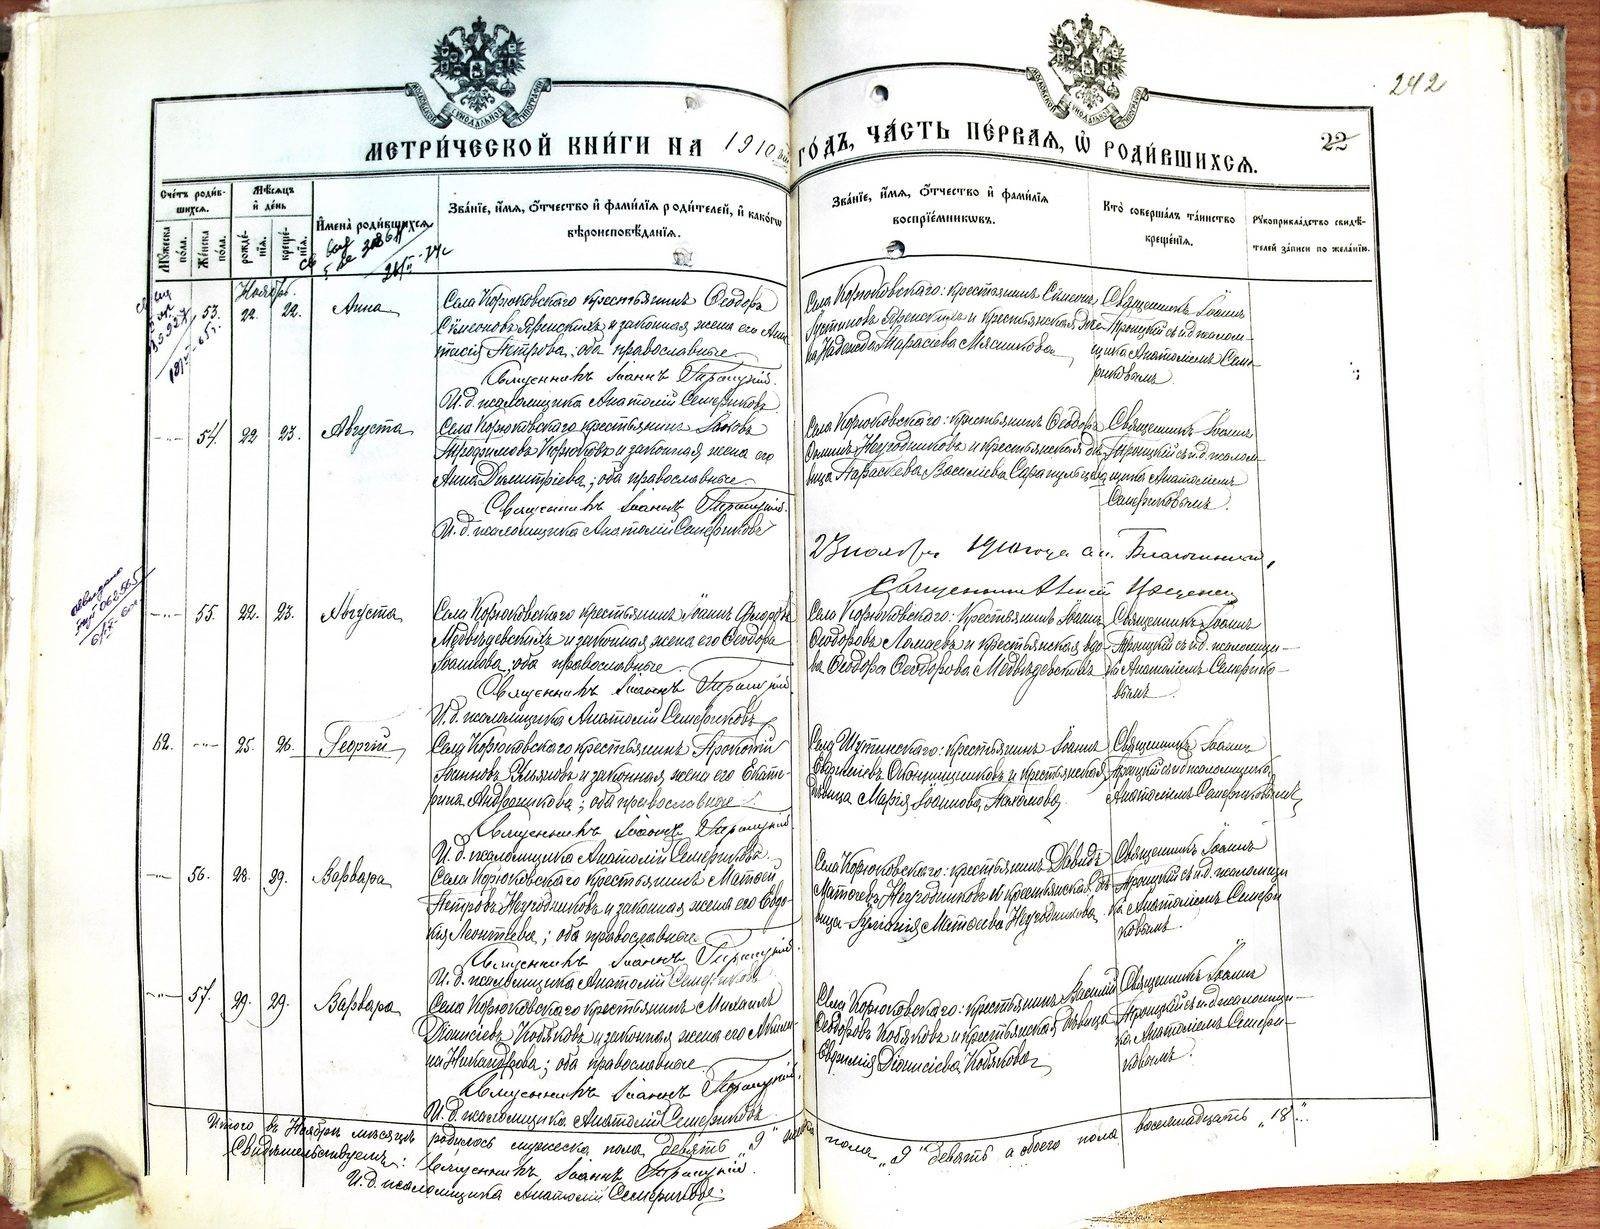 242
МЕТРИ́ЧЕСКОЙ КНИ́ГИ НА 1910 ГО́ДЪ, ЧА́СТЬ ПЕ́РВАЯ, Ѽ РОДИ́ВШИХСѦ. 22
Сче́тъ роди́вшихсѧ.
Мꙋ́жеска по́ла.
Же́нска по́ла.
Мѣ́сѧцъ и҆ де́нь
рожде́нїѧ.
креще́нїѧ.
И҆мена̀ роди́вшихсѧ
Зва́нїе, и҆́мѧ, ѻ҆́тчество и҆ фами́лїѧ роди́телей, и҆ како́гѡ
вѣроисповѣ́данїѧ.
Зва́нїе, и҆́мѧ, ѻ҆́тчество и҆ фами́лїѧ
воспрїе́мникѡвъ.
Кто̀ соверша́лъ та́инство
креще́нїѧ.
Рꙋкоприкла́дство свидѣ́телей за́писи по жела́нїю.
Ноябрь.
53. 22. 22. Анна
Села Корюковскаго крестьянинъ Ѳеодоръ
Сѵмеоновъ и законная жена его Анастасія
Петрова; оба православные
Священникъ Іоаннъ Троицкій.
И. д. псаломщика Анатолій Семериковъ
Села Корюковскаго: крестьянинъ Сѵмеонъ
и крестьянская
Надежда Тарасіева Мясникова
Священникъ Іоаннъ
Троицкій съ и. д. псаломщика
Анатоліемъ Семериковымъ
54. 22 23. Августа
Села Корюковскаго крестьянинъ Іаковъ
Трофимовъ Корюковъ и законная жена его
Анна Димитріева; оба православные
Священникъ Іоаннъ Троицкій.
И. д. псаломщика Анатолій Семериковъ
Села Корюковскаго: крестьянинъ Ѳеодоръ
Неугодниковъ и крестьянская дѣвица
Параскева Василіева
Священникъ Іоаннъ
Троицкій съ и. д. псаломщика
Анатоліемъ
Семериковымъ.
23 ноября 1910 года
Священникъ
55. 22. 23. Августа
Села Корюковскаго крестьянинъ Іоаннъ
Медвѣдевскихъ и законная жена его Ѳеодора
Іоаннова; оба православные.
Священникъ Іоаннъ Троицкій
И. д. псаломщика Анатолій Семериковъ
Села Корюковскаго: крестьянинъ Іоаннъ
Ѳеодоровъ и крестьянская вдова
Ѳеодора Ѳеодорова Медвѣдевскихъ
Священникъ Іоаннъ
Троицкій съ и. д. псаломщика
Анатоліемъ Семериковымъ
62. 25. 26. Георгій
Села Корюковскаго крестьянинъ Прокопій
Іоанновъ и законная жена его Екатерина
Андроникова; оба православные
Священникъ Іоаннъ Троицкій.
И. д. псаломщика Анатолій Семериковъ.
Села Шутинскаго: крестьянинъ Іоаннъ
и крестьянская
дѣвица Марія Іоаннова
Священникъ Іоаннъ
Троицкій съ и. д. псаломщика
Анатоліемъ Семериковымъ
56. 28. 29. Варвара
Села Корюковскаго крестьянинъ Матѳей
Петровъ Неугодниковъ и законная жена его Евдокія
Леонтіева; оба православные
Священникъ Іоаннъ Троицкій.
И. д. псаломщика Анатолій Семериковъ
Села Корюковскаго: крестьянинъ Давидъ
Матѳеевъ Неугодниковъ и крестьянская дѣвица
Матѳеева Неугодникова.
Священникъ Іоаннъ
Троицкій съ и. д. псаломщика
Анатоліемъ Семериковымъ.
57. 29. 29. Варвара
Села Корюковскаго крестьянинъ Михаилъ
Діонисіевъ Кобяковъ и законная жена его
Никандрова; оба православные.
Священникъ Іоаннъ Троицкій.
И. д. псаломщика Анатолій Семериковъ
Села Корюковскаго: крестьянинъ Василій
Ѳеодоровъ Кобяковъ и крестьянская дѣвица
Діонисіева Кобякова
Священникъ Іоаннъ
Троицкій съ и. д. псаломщика
Анатоліемъ Семериковымъ.
Итого въ Ноябрѣ мѣсяцѣ родилось мужеска пола девять „9“ женска пола „9“ девять а обоего пола восемнадцать „18“.
Свидѣтельствуемъ: Священникъ Іоаннъ Троицкій.
И. д. псаломщика Анатолій Семериковъ.